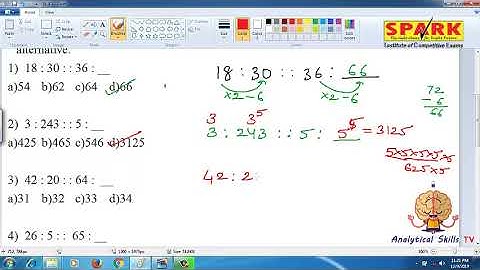 alternative.
1) 18 : 30 : : 36 : __
a)54 b)62 c)64 d)66
2) 3 : 243 : : 5 : __
a)425 b)465 c)546 d)3125
3) 42 : 20 : : 64 : __
a)31 b)32 c)33 d)34
4) 26 : 5 : : 65 : __
18 : 30 :: 36 : 66
×2-6 ×2-6
72
- 6
66
3 3⁵
3 : 243 :: 5 : 5⁵ = 3125
5×5×5×5×5
625×5
42 : 2
SPARK
Institute of Competitive Exams
Analytical Skills TV